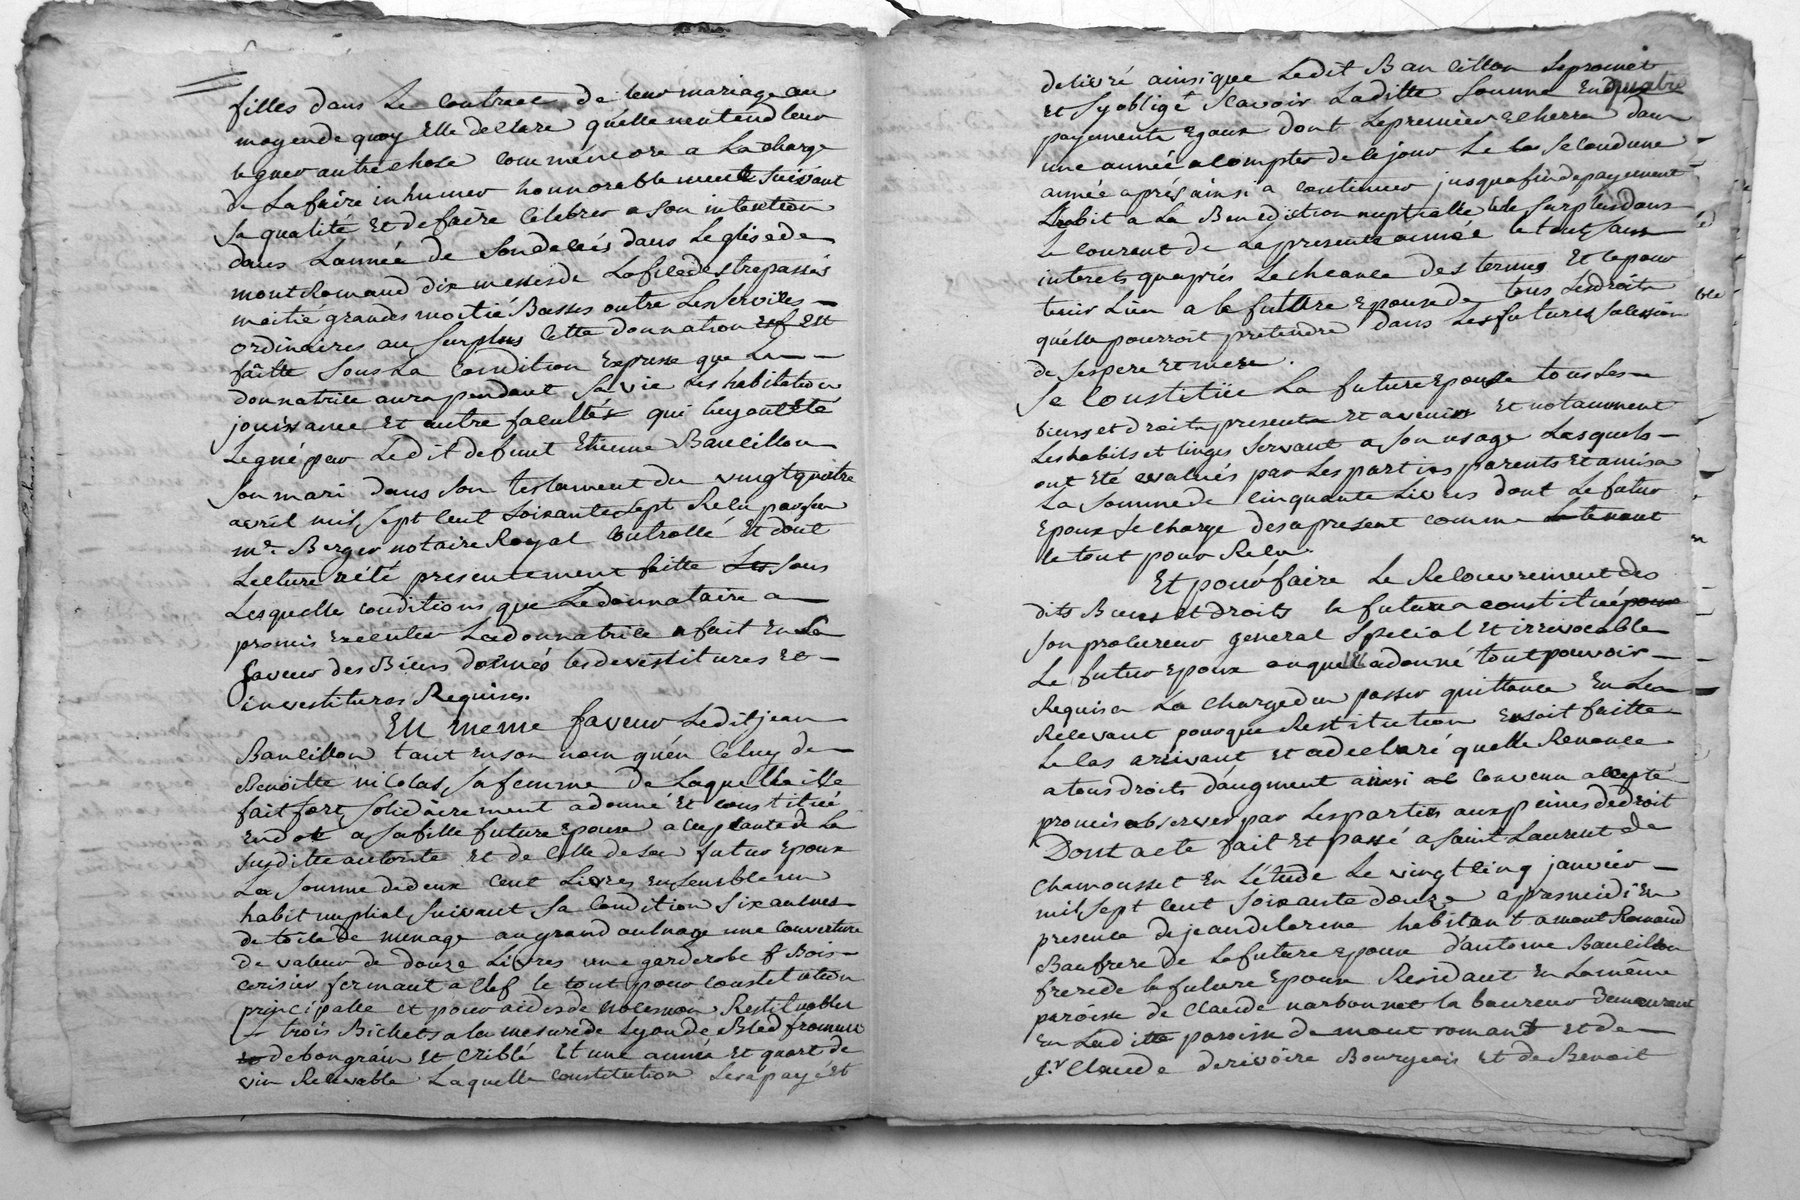 filles dans Le Contract de leur mariage au
moyen de quoy Elle declare qu'elle n'entend leur
leguer autre chose comm'encore a La charge
de La faire inhumer honnorablement suivant
sa qualité Et de faire Celebrer a son intention
dans L'année de son deceds dans Leglise de
montRomand dix messes de Loffice des trepassés
moitié grandes moitié Basses outre Les services
ordinaires au surplus Cette donnation Est
faitte sous La Condition Expresse que La
donnatrice aura pendant sa vie Les habitation
jouissance Et autre facultés qui luy ont Eté
Legué par Ledit defunt Etienne Baucillon
son mari dans son testament du vingt quatre
avril mil sept cent soixante sept Relu par
me. Berger notaire Royal Controllé Et dont
Lecture a été presentement faitte sous
Lesquelles conditions que Le donnataire a
promis Executer La donnatrice a fait En Sa
faveur des Biens donnés les devestitures Et
investitures Requises.
En meme faveur Ledit jean
Baucillon tant en son nom qu'en Celuy de
Benoitte nicolas sa femme de Laquelle il se
fait fort solidairement a donné Et constitué
En dot a sa fille future Epouse acceptante de La
susditte autorité Et de Celle de son futur Epoux
La somme de deux cent Livres Ensemble un
habit nuptial suivant sa Condition six aulnes
de toile de menage au grand aulnage une Couverture
De valeur de douze Livres une garderobe de Bois
cerisier fermant a Clef le tout pour Constitution
principalle et pour aides de noces non Restituables
trois Bichets a la mesure de Lyon de Bled froment
de bon grain Et criblé Et une année Et quart de
vin Recevable Laquelle constitution sera payé Et
delivré ainsique Ledit Baucillon Le promet
Et s'y oblige Scavoir Laditte somme En quatre
payements Egaux dont Le premier echerra dans
une année a Compter de Cejour Le Second une
année après ainsi a continuer jusqu'a fin de payement
L'habit a La Benediction nuptialle Et le surplus dans
Le Courant de La presente année le tout sans
interets qu'après L'echeance des termes Et Ce pour
tenir Lieu a la future Epouse de tous Les droits
qu'elle pourroit pretendre dans Les futures successions
de ses pere Et mere.
Se Constitüe La future Epouse tous Ses
Biens et droits presents Et avenirs Et notamment
Les habits et linges servant a son usage Lesquels
ont Eté evalués par Les parties parents Et amis a
La somme de Cinquante Livres dont Le futur
Epoux Se charge des a present comme
le tout pour Relu.
Et pour faire Le Recouvrement des
dits Biens et Droits la future a constitué pour
son procureur general special Et irrevocable
Le futur Epoux auquel Elle a donné tout pouvoir
Requis a La charge d'en passer quittance En Les
Relevant pour que Restitution En soit faitte
Le Cas arrivant Et a declaré quelle Renonce
a tous droits d'augment ainsi Convenu accepté
promis observer par Les parties aux peines de droit
Dont acte fait Et passé a Saint Laurent de
Chamousset En L'étude Le vingt cinq janvier
mil sept cent soixante douze apres midi En
presence de jean delorme habitant a mont Romand
Beaufrere de La future Epouse d'antoine Baucillon
frere de la future Epouse Residant En La même
paroisse de Claude narbonnet laboureur Demeurant
En Laditte paroisse de mont romant Et de
Sr Claude derivoire Bourgeois Et de Benoit